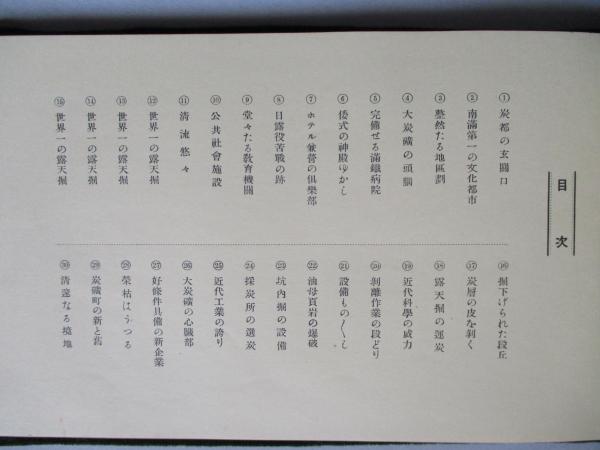 目次
① 炭都の玄關口
② 南滿第一の文化都市
③ 整然たる地區劃
④ 大炭礦の頭腦
⑤ 完備せる滿鐵病院
⑥ 倭式の神殿ゆかし
⑦ ホテル兼營の倶樂部
⑧ 日露役苦戰の跡
⑨ 堂々たる敎育機關
⑩ 公共社會施設
⑪ 淸流悠々
⑫ 世界一の露天掘
⑬ 世界一の露天掘
⑭ 世界一の露天掘
⑮ 世界一の露天掘
⑯ 掘下げられた段丘
⑰ 炭層の皮を剝く
⑱ 露天掘の運炭
⑲ 近代科學の威力
⑳ 剝離作業の段どり
㉑ 設備もの〱し
㉒ 油母頁岩の爆破
㉓ 坑內掘の設備
㉔ 採炭所の選炭
㉕ 近代工業の誇り
㉖ 大炭礦の心臟部
㉗ 好條件具備の新企業
㉘ 榮枯はうつる
㉙ 炭礦町の新と舊
㉚ 淸遠なる境地